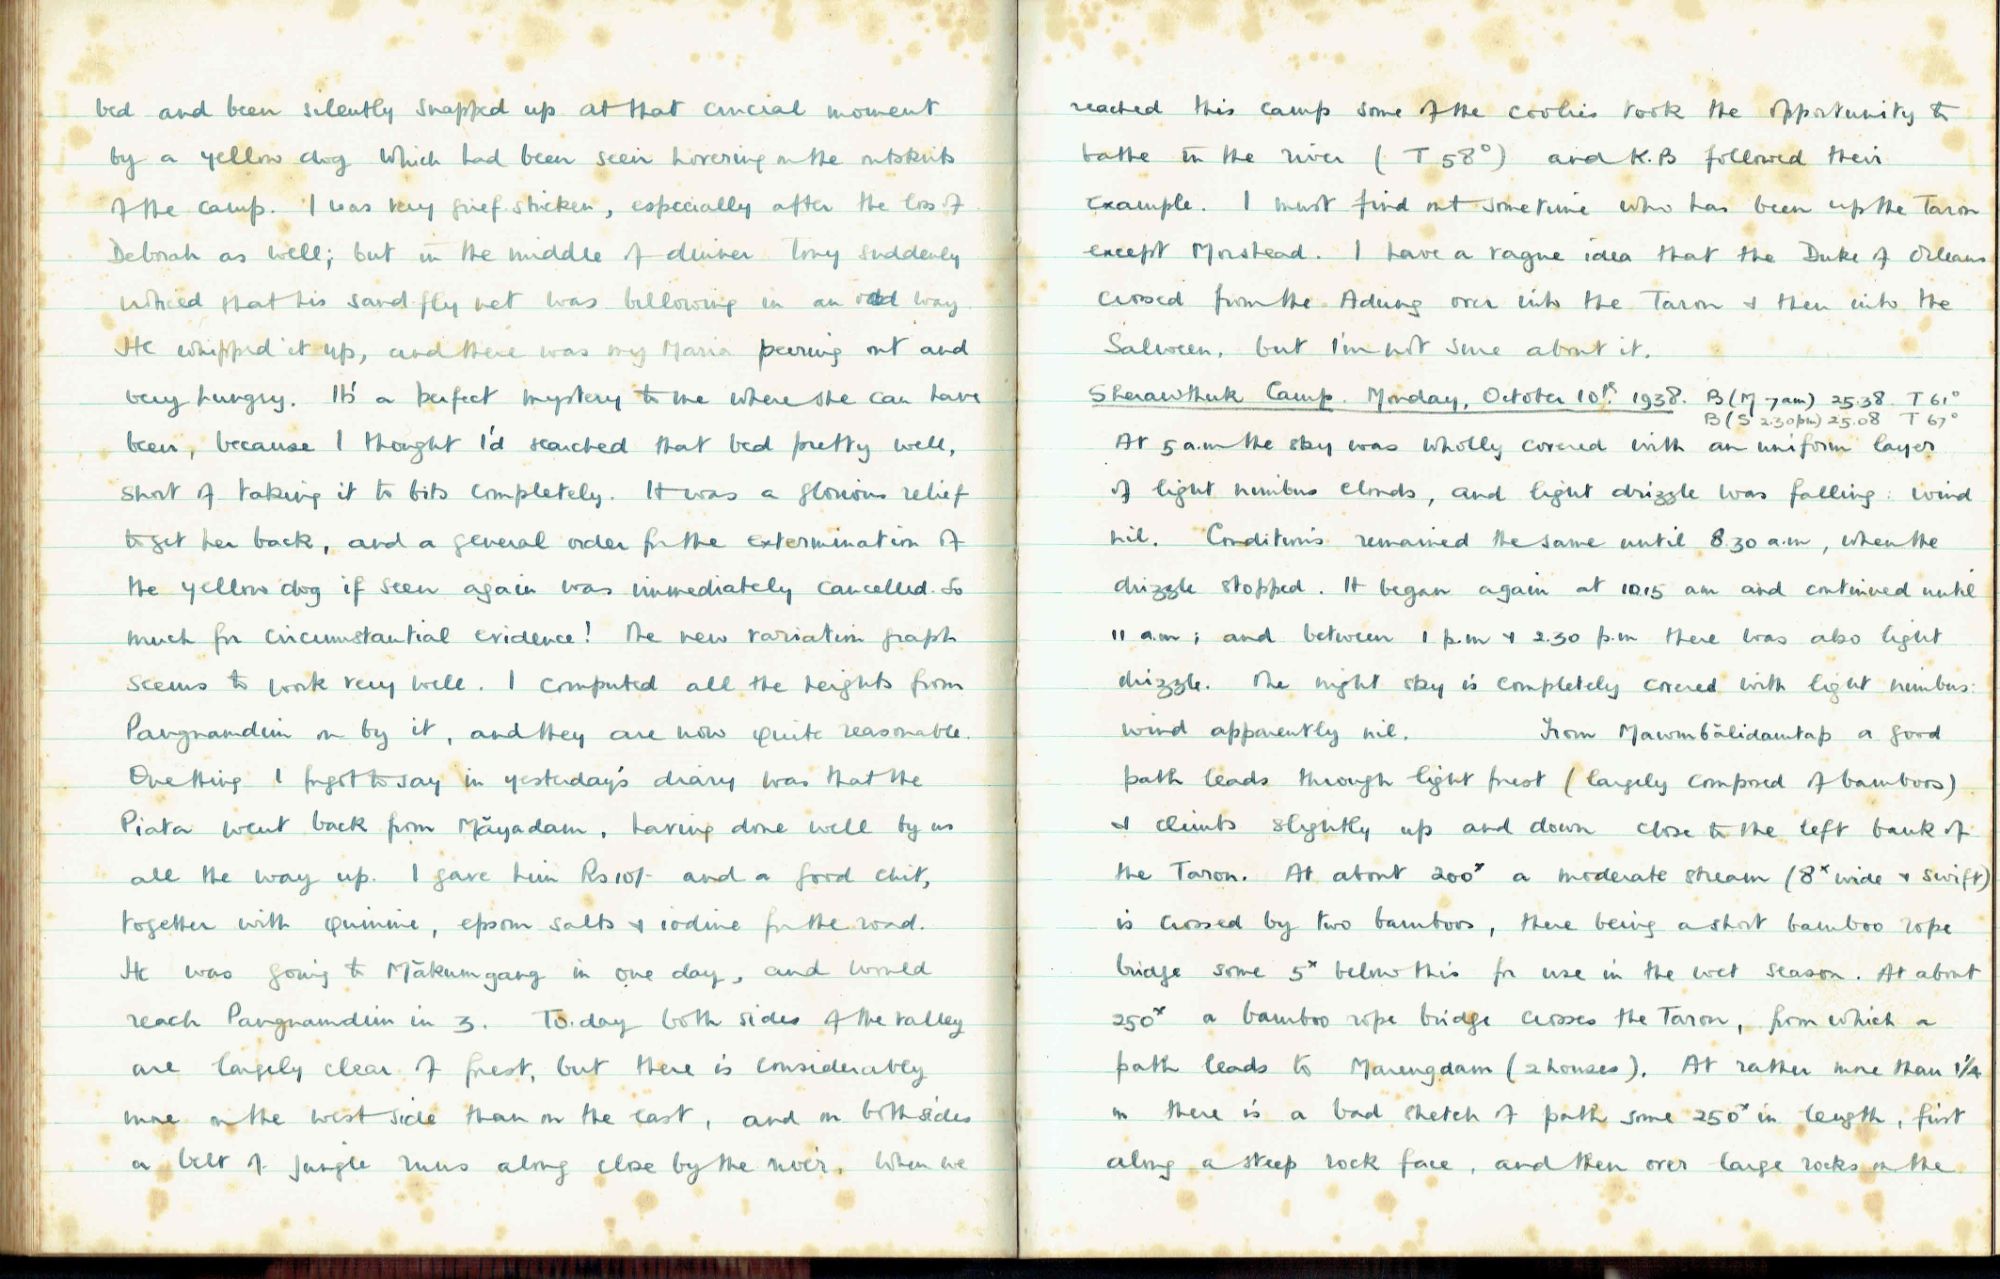 bed and been silently snapped up at that crucial moment
by a yellow dog which had been seen hovering on the outskirts
of the camp. I was very grief stricken, especially after the loss of
Deborah as well; but in the middle of dinner Tony suddenly
noticed that his sand-fly net was billowing in an odd way.
He whipped it up, and there was my Maria peering out and
very hungry. It's a perfect mystery to me where she can have
been, because I thought I'd searched that bed pretty well,
short of taking it to bits completely. It was a glorious relief
to get her back, and a general order for the extermination of
the yellow dog if seen again was immediately cancelled. So
much for circumstantial evidence! The new variation graph
seems to work very well. I computed all the heights from
Pangnamdim on by it, and they are now quite reasonable.
One thing I forgot to say in yesterday's diary was that the
Piata went back from Māyadam, having done well by us
all the way up. I gave him Rs 10/- and a good chit,
together with quinine, epsom salts & iodine for the road.
He was going to Mākumgang in one day, and would
reach Pangnamdim in 3. To.day both sides of the valley
are largely clear of forest, but there is considerably
more on the west side than on the east, and on both sides
a belt of jungle runs along close by the river. When we
reached this camp some of the coolies took the opportunity to
bathe in the river (T 58°) and K.B followed their
example. I must find out sometime who has been up the Taron
except Morshead. I have a vague idea that the Duke of Orleans
crossed from the Adung over into the Taron & then into the
Salween, but I'm not sure about it.
Sherawthuk Camp. Monday, October 10th. 1938. B (M 7am) 25.38 T 61°
B (S 2.30pm) 25.08 T 67°
At 5 a.m the sky was wholly covered with an uniform layer
of light nimbus clouds, and light drizzle was falling: wind
nil. Conditions remained the same until 8.30 a.m, when the
drizzle stopped. It began again at 10.15 am and continued until
11 a.m; and between 1 p.m & 2.30 p.m there was also light
drizzle. The night sky is completely covered with light nimbus:
wind apparently nil. From Mawmbālidamtap a good
path leads through light forest (largely composed of bamboos)
& climbs slightly up and down close to the left bank of
the Taron. At about 200ˣ a moderate stream (8ˣ wide & swift)
is crossed by two bamboos, there being a short bamboo rope
bridge some 5ˣ below this for use in the wet season. At about
250ˣ a bamboo rope bridge crosses the Taron, from which a
path leads to Marengdam (2 houses). At rather more than 1/4
m there is a bad stretch of path some 250ˣ in length, first
along a steep rock face, and then over large rocks on the